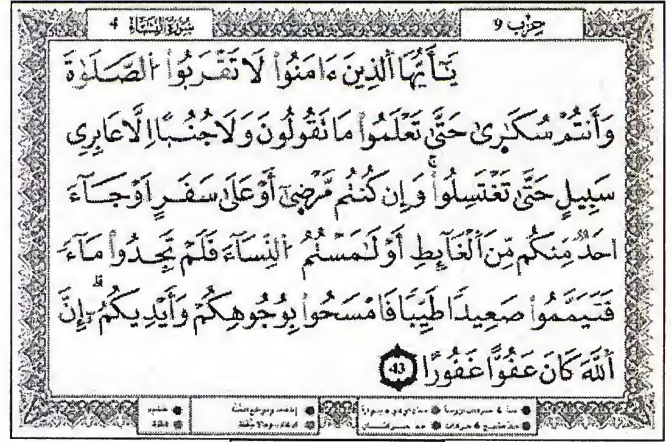 حزب 9
سُورَةُ النِّسَاءِ 4
يَٰٓأَيُّهَا اَ۬لذِينَ ءَامَنُواْ لَا تَقْرَبُواْ اُ۬لصَّلَوٰةَ
وَأَنتُمْ سُكَٰرَىٰ حَتَّىٰ تَعْلَمُواْ مَا تَقُولُونَ وَلَا جُنُبًا اِلَّا عَابِرِى
سَبِيلٍ حَتَّىٰ تَغْتَسِلُواْۖ وَإِن كُنتُم مَّرْضَىٰٓ أَوْ عَلَىٰ سَفَرٍ اَوْ جَآءَ
احَدٌ مِّنكُم مِّنَ اَ۬لْغَآئِطِ أَوْ لَٰمَسْتُمُ اُ۬لنِّسَآءَ فَلَمْ تَجِدُواْ مَآءً
فَتَيَمَّمُواْ صَعِيدًا طَيِّبًا فَامْسَحُواْ بِوُجُوهِكُمْ وَأَيْدِيكُمُۥٓۖ إِنَّ
اَ۬للَّهَ كَانَ عَفُوًّا غَفُورًا 43